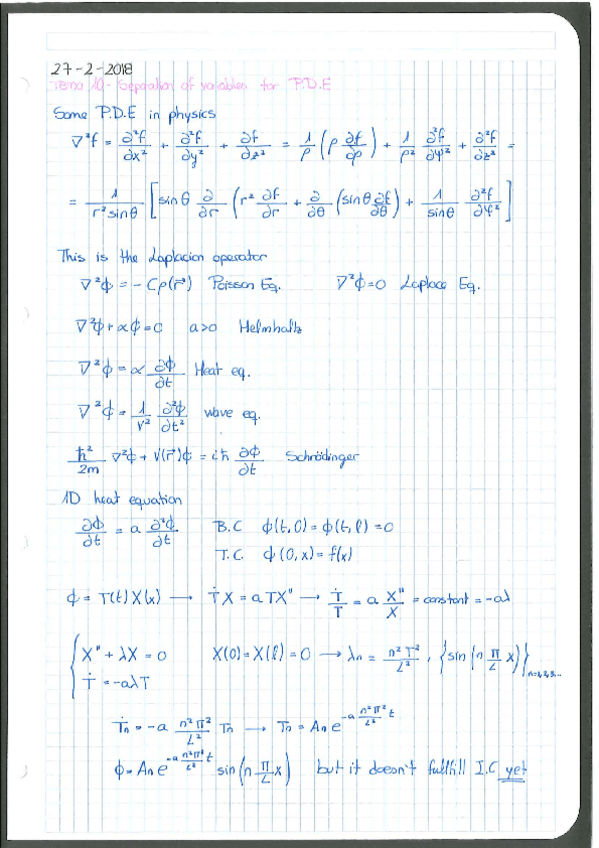 27-2-2018
Tema 10- Separation of variables for P.D.E
Some P.D.E in physics
∇²f = ∂²f/∂x² + ∂²f/∂y² + ∂f/∂z² = 1/ρ (ρ ∂f/∂ρ) + 1/ρ² ∂²f/∂φ² + ∂²f/∂z² =
= 1/(r² sinθ) [sinθ ∂/∂r (r² ∂f/∂r + ∂/∂θ (sinθ ∂f/∂θ) + 1/sinθ ∂²f/∂φ²]
This is the Laplacian operator
∇²ϕ = -Cρ(r⃗) Poisson Eq. ∇²ϕ=0 Laplace Eq.
∇²ϕ+αϕ=0 a>0 Helmhaltz
∇²ϕ = α ∂ϕ/∂t Heat eq.
∇²ϕ = 1/V² ∂²ϕ/∂t² wave eq.
ħ²/2m ∇²ϕ + V(r⃗)ϕ = iħ ∂ϕ/∂t Schrödinger
1D heat equation
∂ϕ/∂t = a ∂²ϕ/∂t B.C ϕ(t,0) = ϕ(t,l) = 0
T.C. ϕ(0,x) = f(x)
ϕ = T(t)X(x) → ṪX = aTX" → Ṫ/T = a X"/X = constant = -aλ
{ X" + λX = 0 X(0) = X(l) = 0 → λn = n²π²/L², {sin(n π/L x)}n=1,2,3...
Ṫ = -aλT
Ṫn = -a n²π²/L² Tn → Tn = An e^(-a n²π²/L² t)
ϕ = An e^(-a n²π²/L² t) sin(n π/L x) but it doesn't fulfill I.C yet